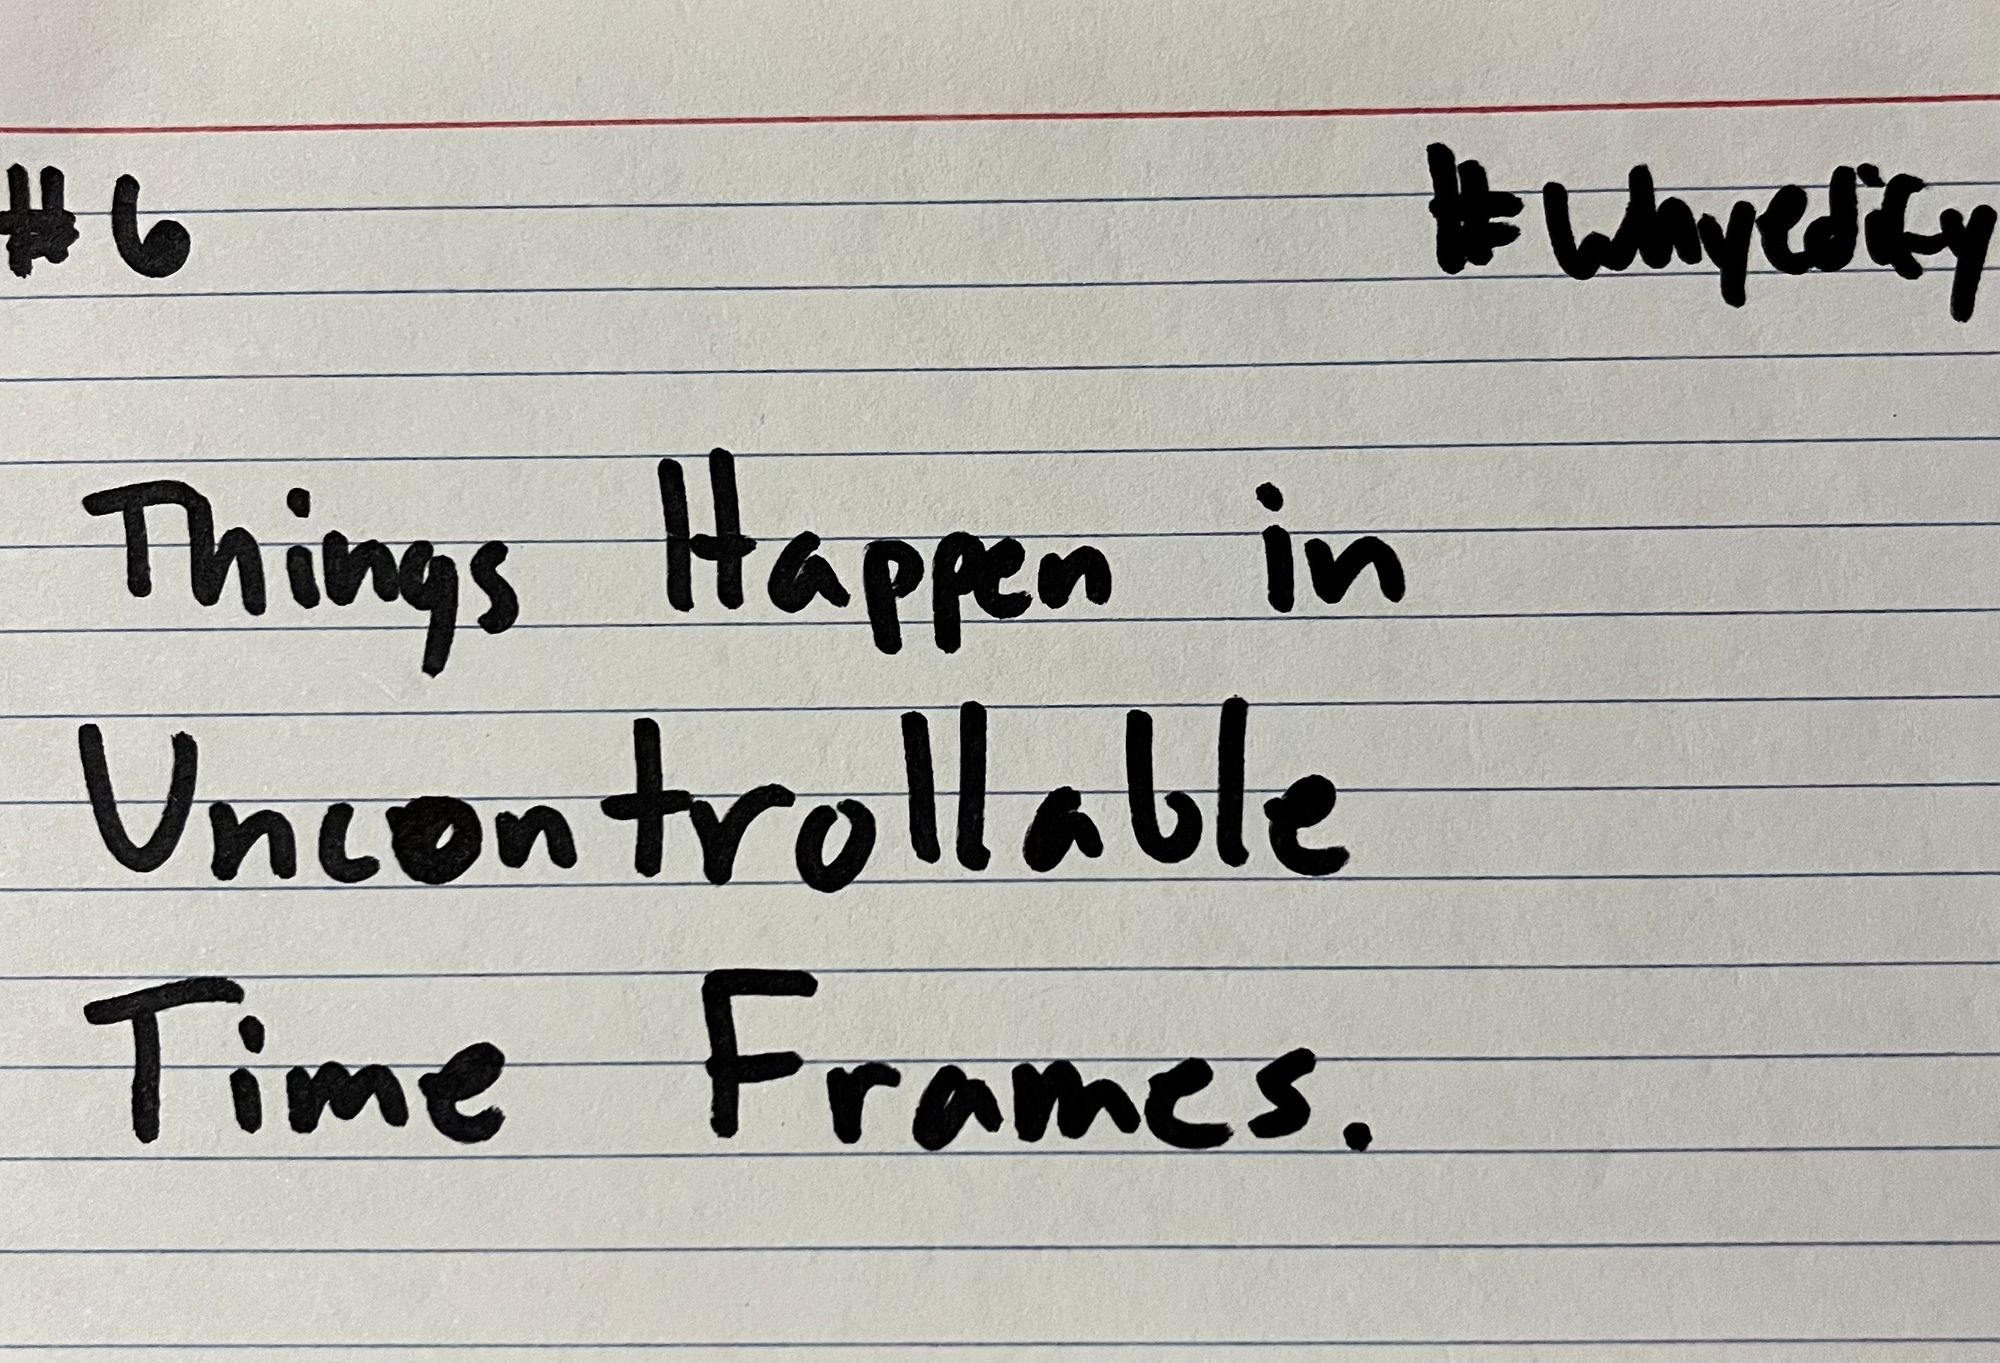 #6 #Whyedify
Things Happen in
Uncontrollable
Time Frames.